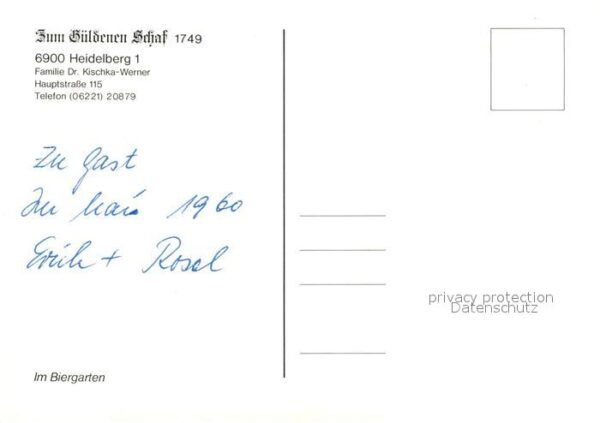 Zum Güldenen Schaf 1749
6900 Heidelberg 1
Familie Dr. Kischka-Werner
Hauptstraße 115
Telefon (06221) 20879
Zu Gast
1960
Erich + Rosel
Im Biergarten
privacy protection
Datenschutz